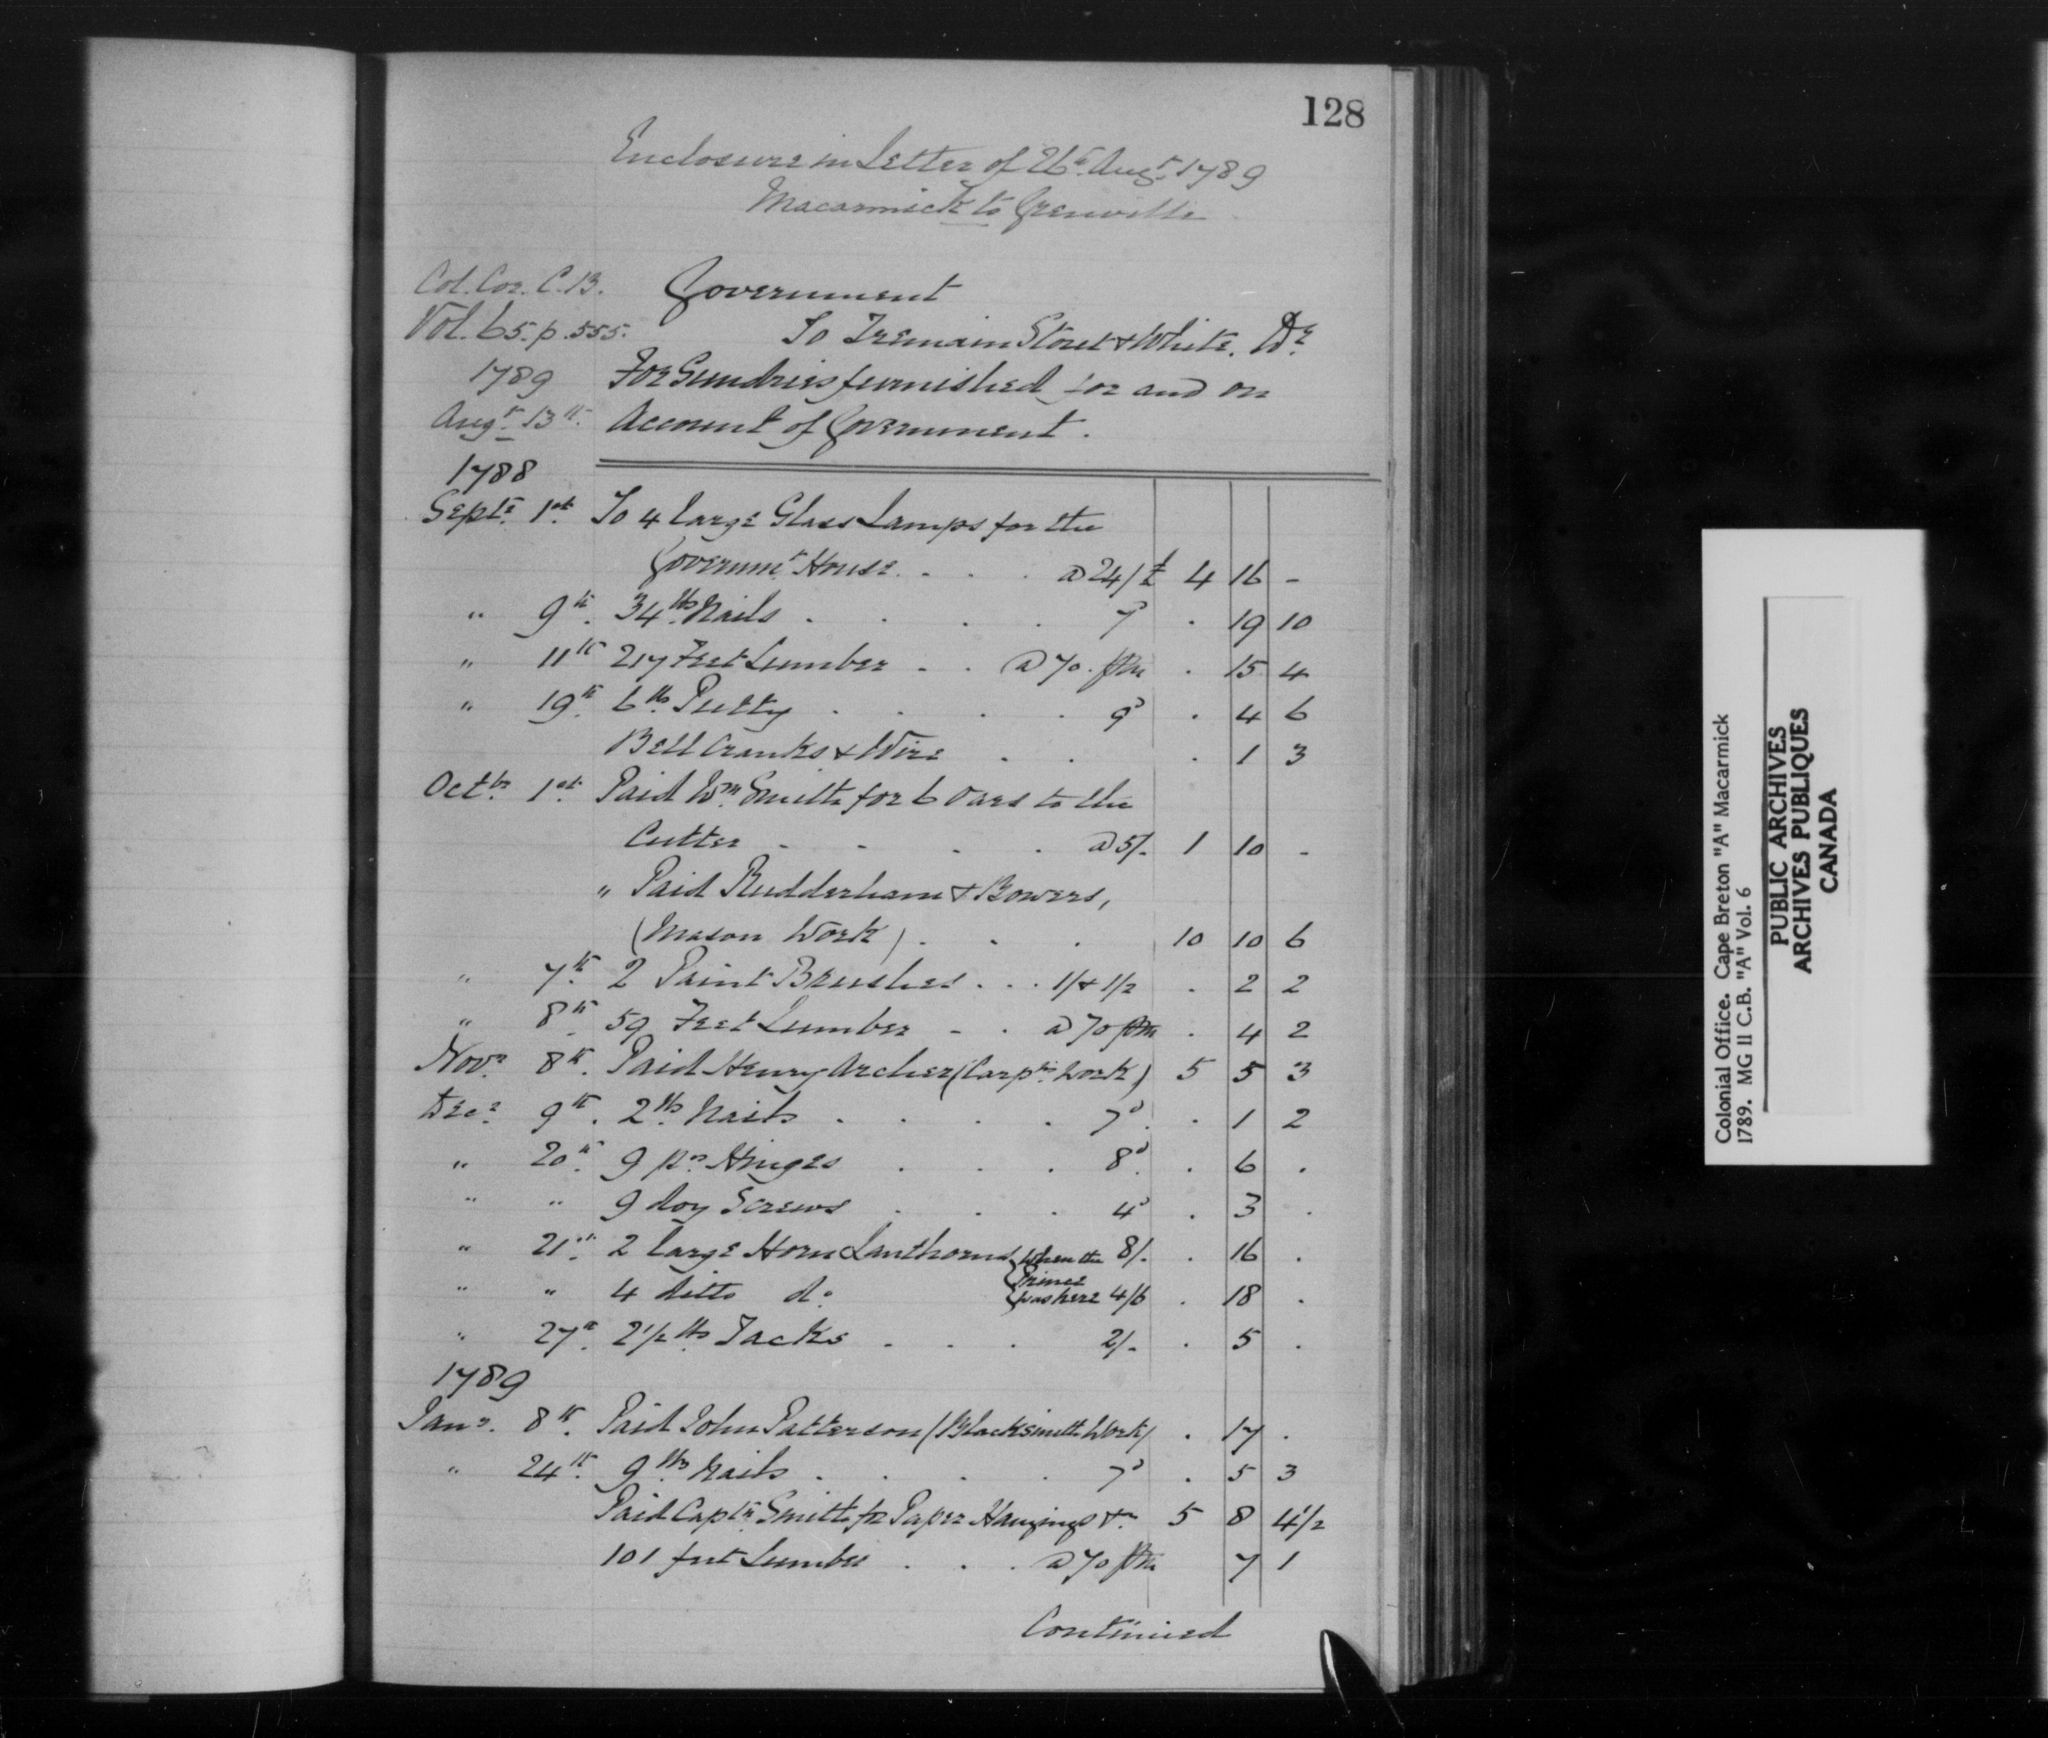 128
Enclosure in Letter of 26th Augt 1789
Macarmick to Grenville
Col. Cor. C. B. Government
Vol. 65. p. 555. To Tremain Stout & White. Dr
1789 For Sundries furnished for and on
Augt 13th Account of Government.
1788
Septr 1st To 4 large Glass Lamps for the
Governmt House . . . @ 24/ 4 16 -
" 9th 34 lbs Nails . . . . 7d . 19 10
" 11th 217 Feet Lumber . . @ 70. pm . 15 4
" 19th 6 lbs Putty . . . . 9d . 4 6
Bell Cranks & Wire . . . 1 3
Octbr 1st Paid Wm Smith for 6 Oars to the
Cutter - - . . @ 5/- 1 10 -
" Paid Rudderham & Bowers,
(Mason Work) . . . 10 10 6
" 7th 2 Paint Brushes . . . 1/ & 1/2 . 2 2
" 8th 59 Feet Lumber - . @ 70 pm . 4 2
Novr 8th Paid Henry Archer (Carptrs Work) 5 5 3
Decr 9th 2 lbs Nails . . . . 7d . 1 2
" 20th 9 pr Hinges . . . 8d . 6 .
" " 9 doz Screws . . . 4d . 3 .
" 21st 2 large Horn Lanthorns { When the 8/. . 16 .
Prince
" " 4 ditto do { was here 4/6 . 18 .
" 27th 2 1/2 lbs Tacks . . . 2/- . 5 .
1789
Janr 8th Paid John Patterson (Blacksmith Work) . 17 .
" 24th 9 lbs Nails . . . . 7d . 5 3
Paid Captn Smith for Paper Hangings &c 5 8 4 1/2
101 feet Lumber . . . @ 70 pm 7 1
Continued
Colonial Office. Cape Breton "A" Macarmick
1789. MG 11 C.B. "A" Vol. 6
PUBLIC ARCHIVES
ARCHIVES PUBLIQUES
CANADA